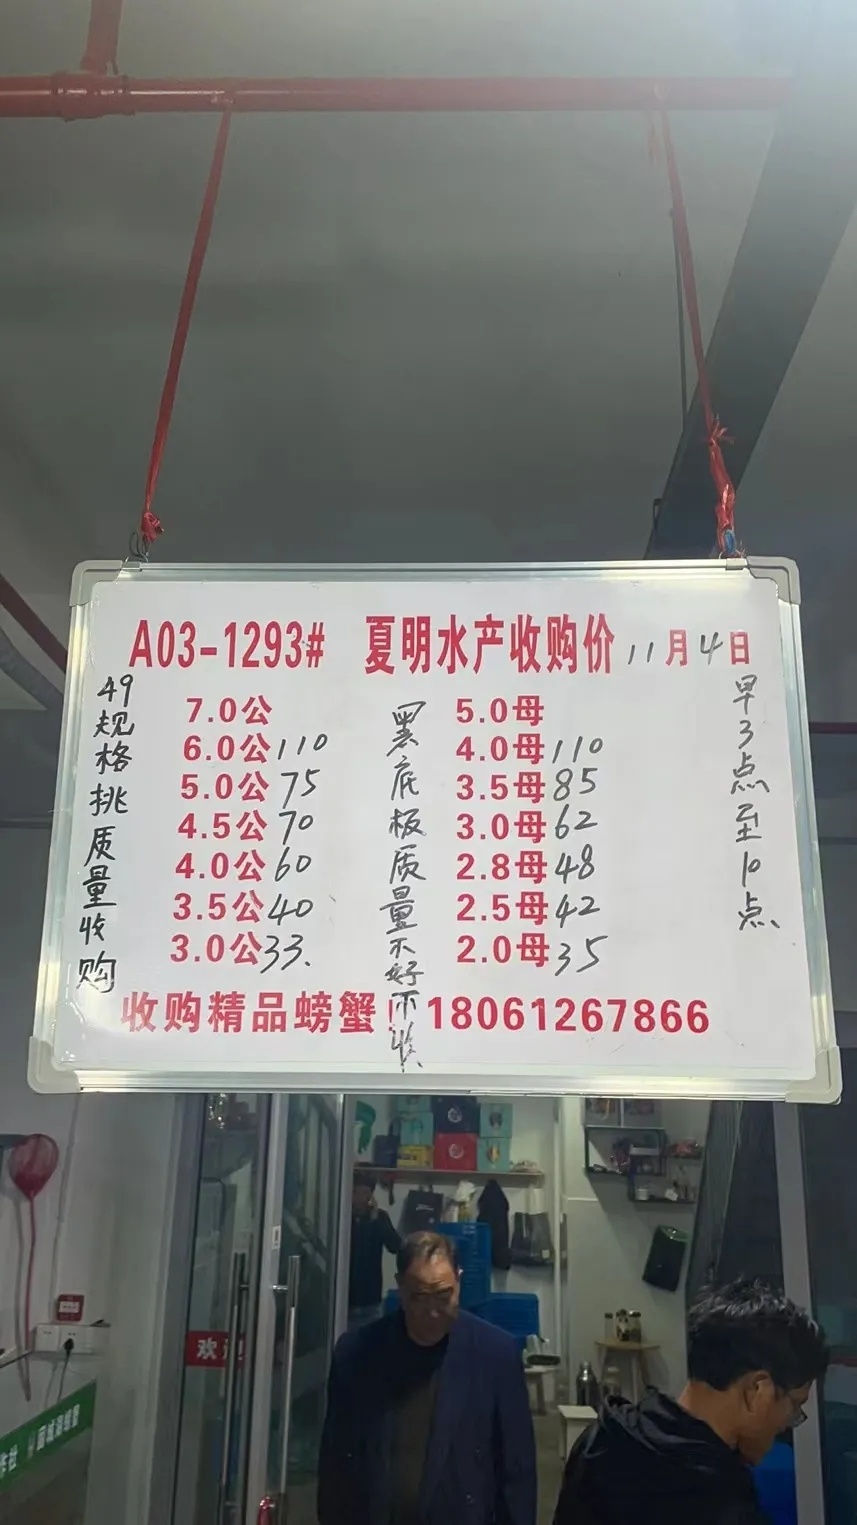 A03-1293# 夏明水产收购价 11月4日
49规格挑质量收购
7.0公
6.0公110
5.0公75
4.5公70
4.0公60
3.5公40
3.0公33.
黑底板质量不好不收
5.0母
4.0母110
3.5母85
3.0母62
2.8母48
2.5母42
2.0母35
早3点至10点
收购精品螃蟹! 18061267866
欢迎